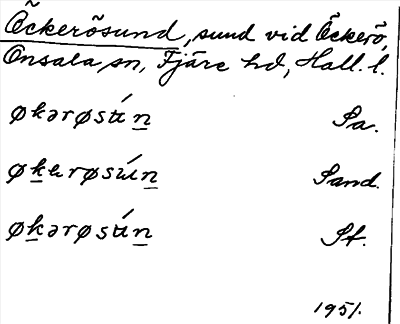 Öckerösund, sund vid Öckerö,
Onsala sn, Fjäre hd, Hall. l.
økərøsún Sa.
økɐrøsún Sand.
økərøsún St.
1951.